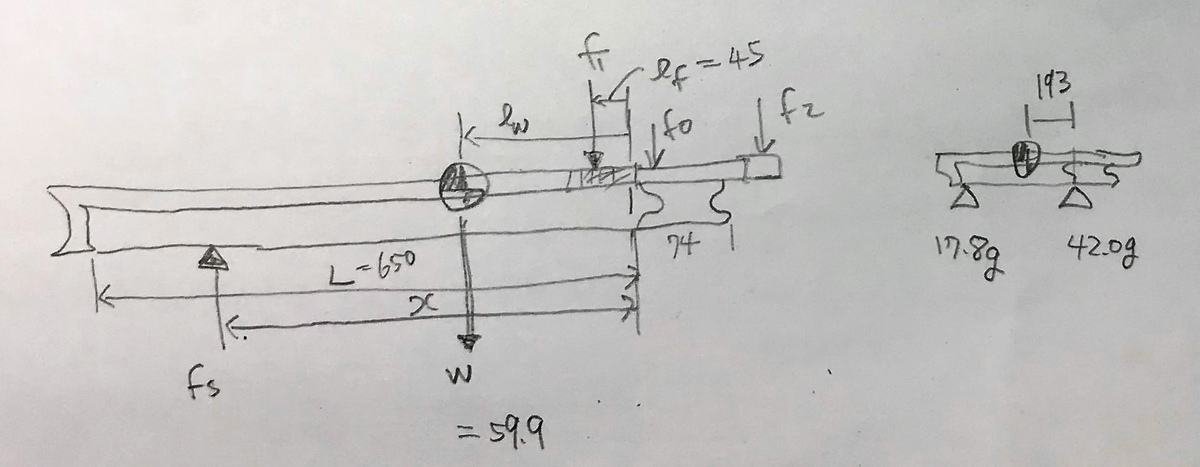 f1
lf = 45
lw
f0
f2
L=650
x
74
fs
W
= 59.9
193
17.8g
42.0g